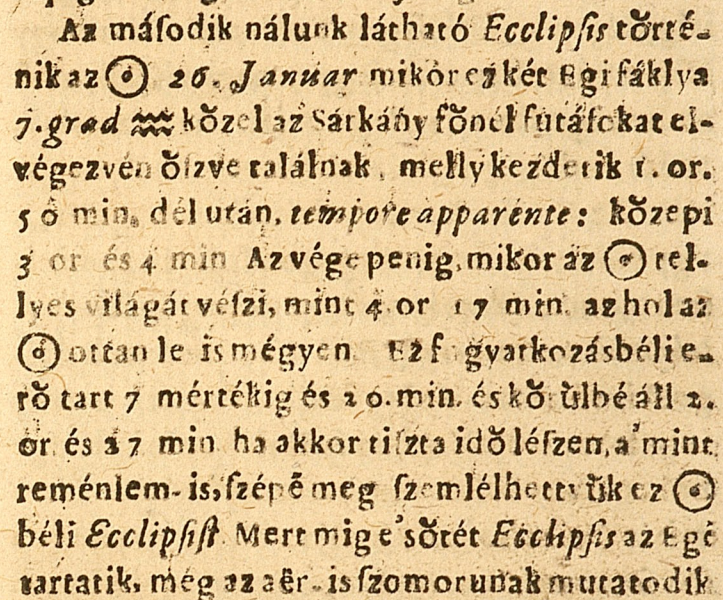 Az máſodik nálunk látható Ecclipſis tŏrté-
nik az ☉ 26. Januar mikor ez két Egi fáklya
7. grad ♒ kŏzel az Sárkány fŏnél futáſokat el-
végezvén ŏſzve találnak, melly kezdetik 1. or.
50 min. dél után, tempore apparente: kŏzepi
3 or és 4 min Az vége penig, mikor az ☉ tel-
lyes világát véſzi, mint 4 or 17 min. az hol az
☉ ottan le is mégyen. Ez fogyatkozásbéli e-
rŏ tart 7 mértékig és 20. min. és kŏrŭlbé áll 2.
or és 27 min ha akkor tiſzta idŏ léſzen, a' mint
reménlem-is, ſzépē meg ſzemlélhettyŭk ez ☉
béli Ecclipſiſt Mert mig e' sŏtét Ecclipſis az Egē
tartatik, még az aër-is ſzomorunak mutatodik